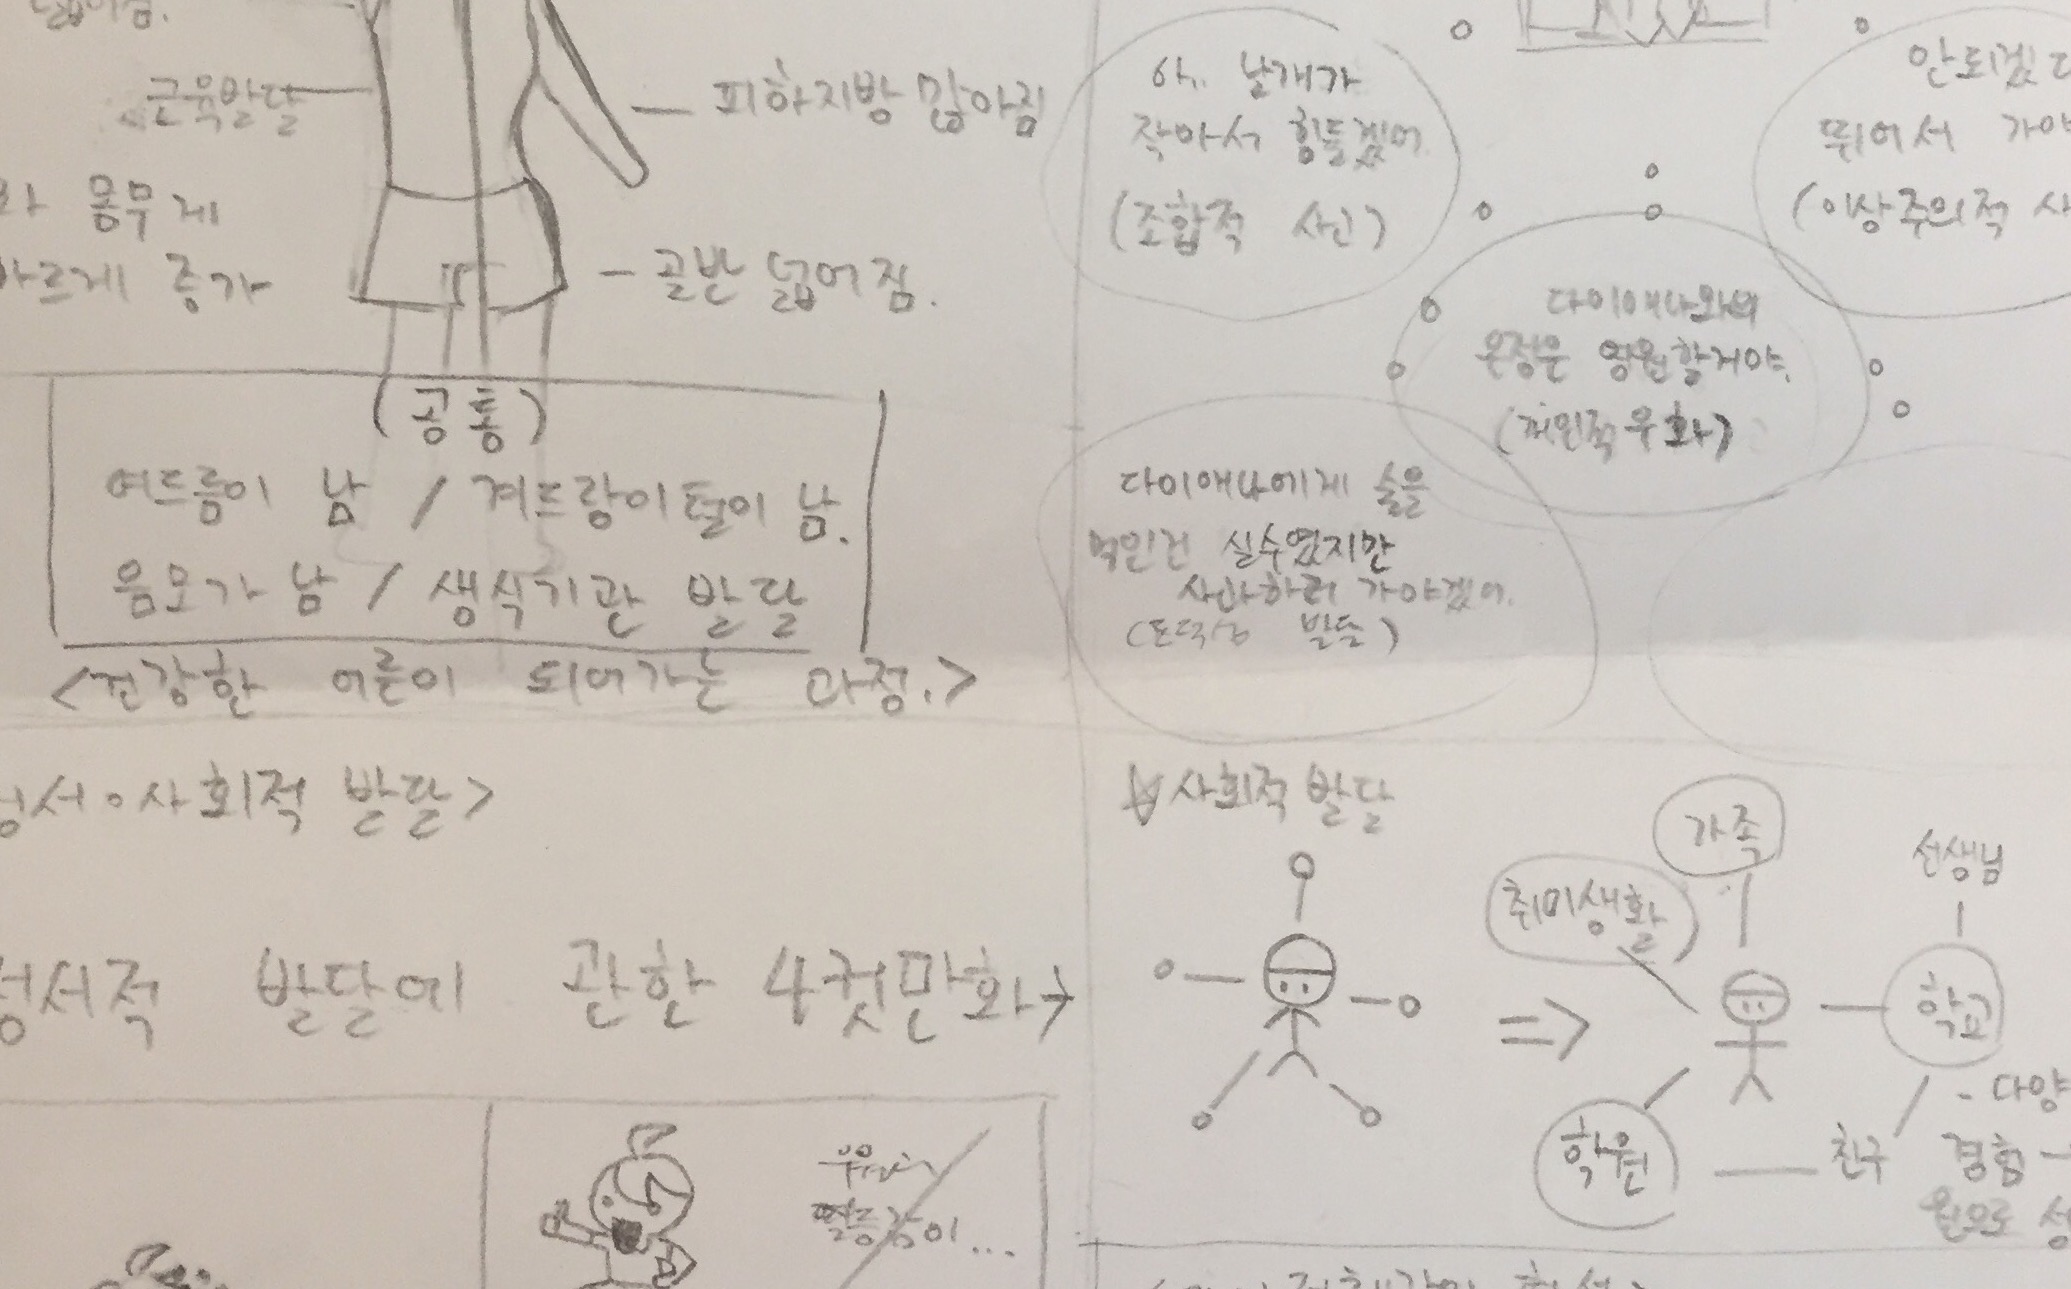 넓어짐.
근육발달
피하지방 많아짐
와 몸무게
빠르게 증가
골반 넓어짐.
(공통)
여드름이 남 / 겨드랑이 털이 남.
음모가 남 / 생식기관 발달
<건강한 어른이 되어가는 과정.>
정서·사회적 발달>
정서적 발달에 관한 4컷만화→
아.. 날개가
작아서 힘들겠어.
(조합적 사고)
안되겠다
뛰어서 가야
(이상주의적 사
다이애나와의
우정은 영원할거야.
(개인적 우화)
다이애나에게 술을
먹인건 실수였지만
사과하러 가야겠어.
(도덕성 발달)
사회적 발달
가족
취미생활
선생님
학교
학원
친구
- 다양
경험
원으로 성